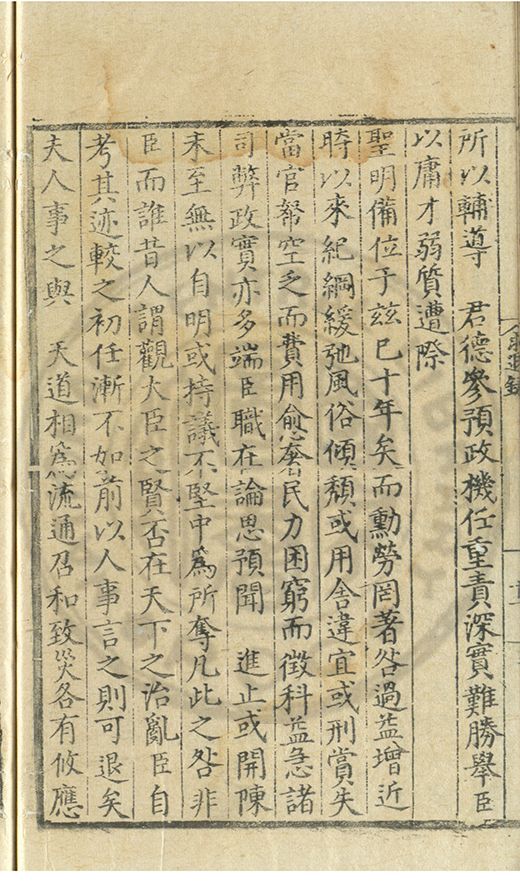 所以輔導　君德參預政機任重責深實難勝舉臣
以庸才弱質遭際
聖明備位于玆已十年矣而勳勞罔著咎過益增近
時以來紀綱緩弛風俗傾頹或用舍違宜或刑賞失
當官帑空乏而費用愈奢民力困窮而徵科益急諸
司弊政實亦多端臣職在論思預聞　進止或開陳
未至無以自明或持議不堅中爲所奪凡此之咎非
臣而誰昔人謂觀大臣之賢否在天下之治亂臣自
考其迹較之初任漸不如前以人事言之則可退矣
夫人事之與　天道相爲流通召和致災各有攸應